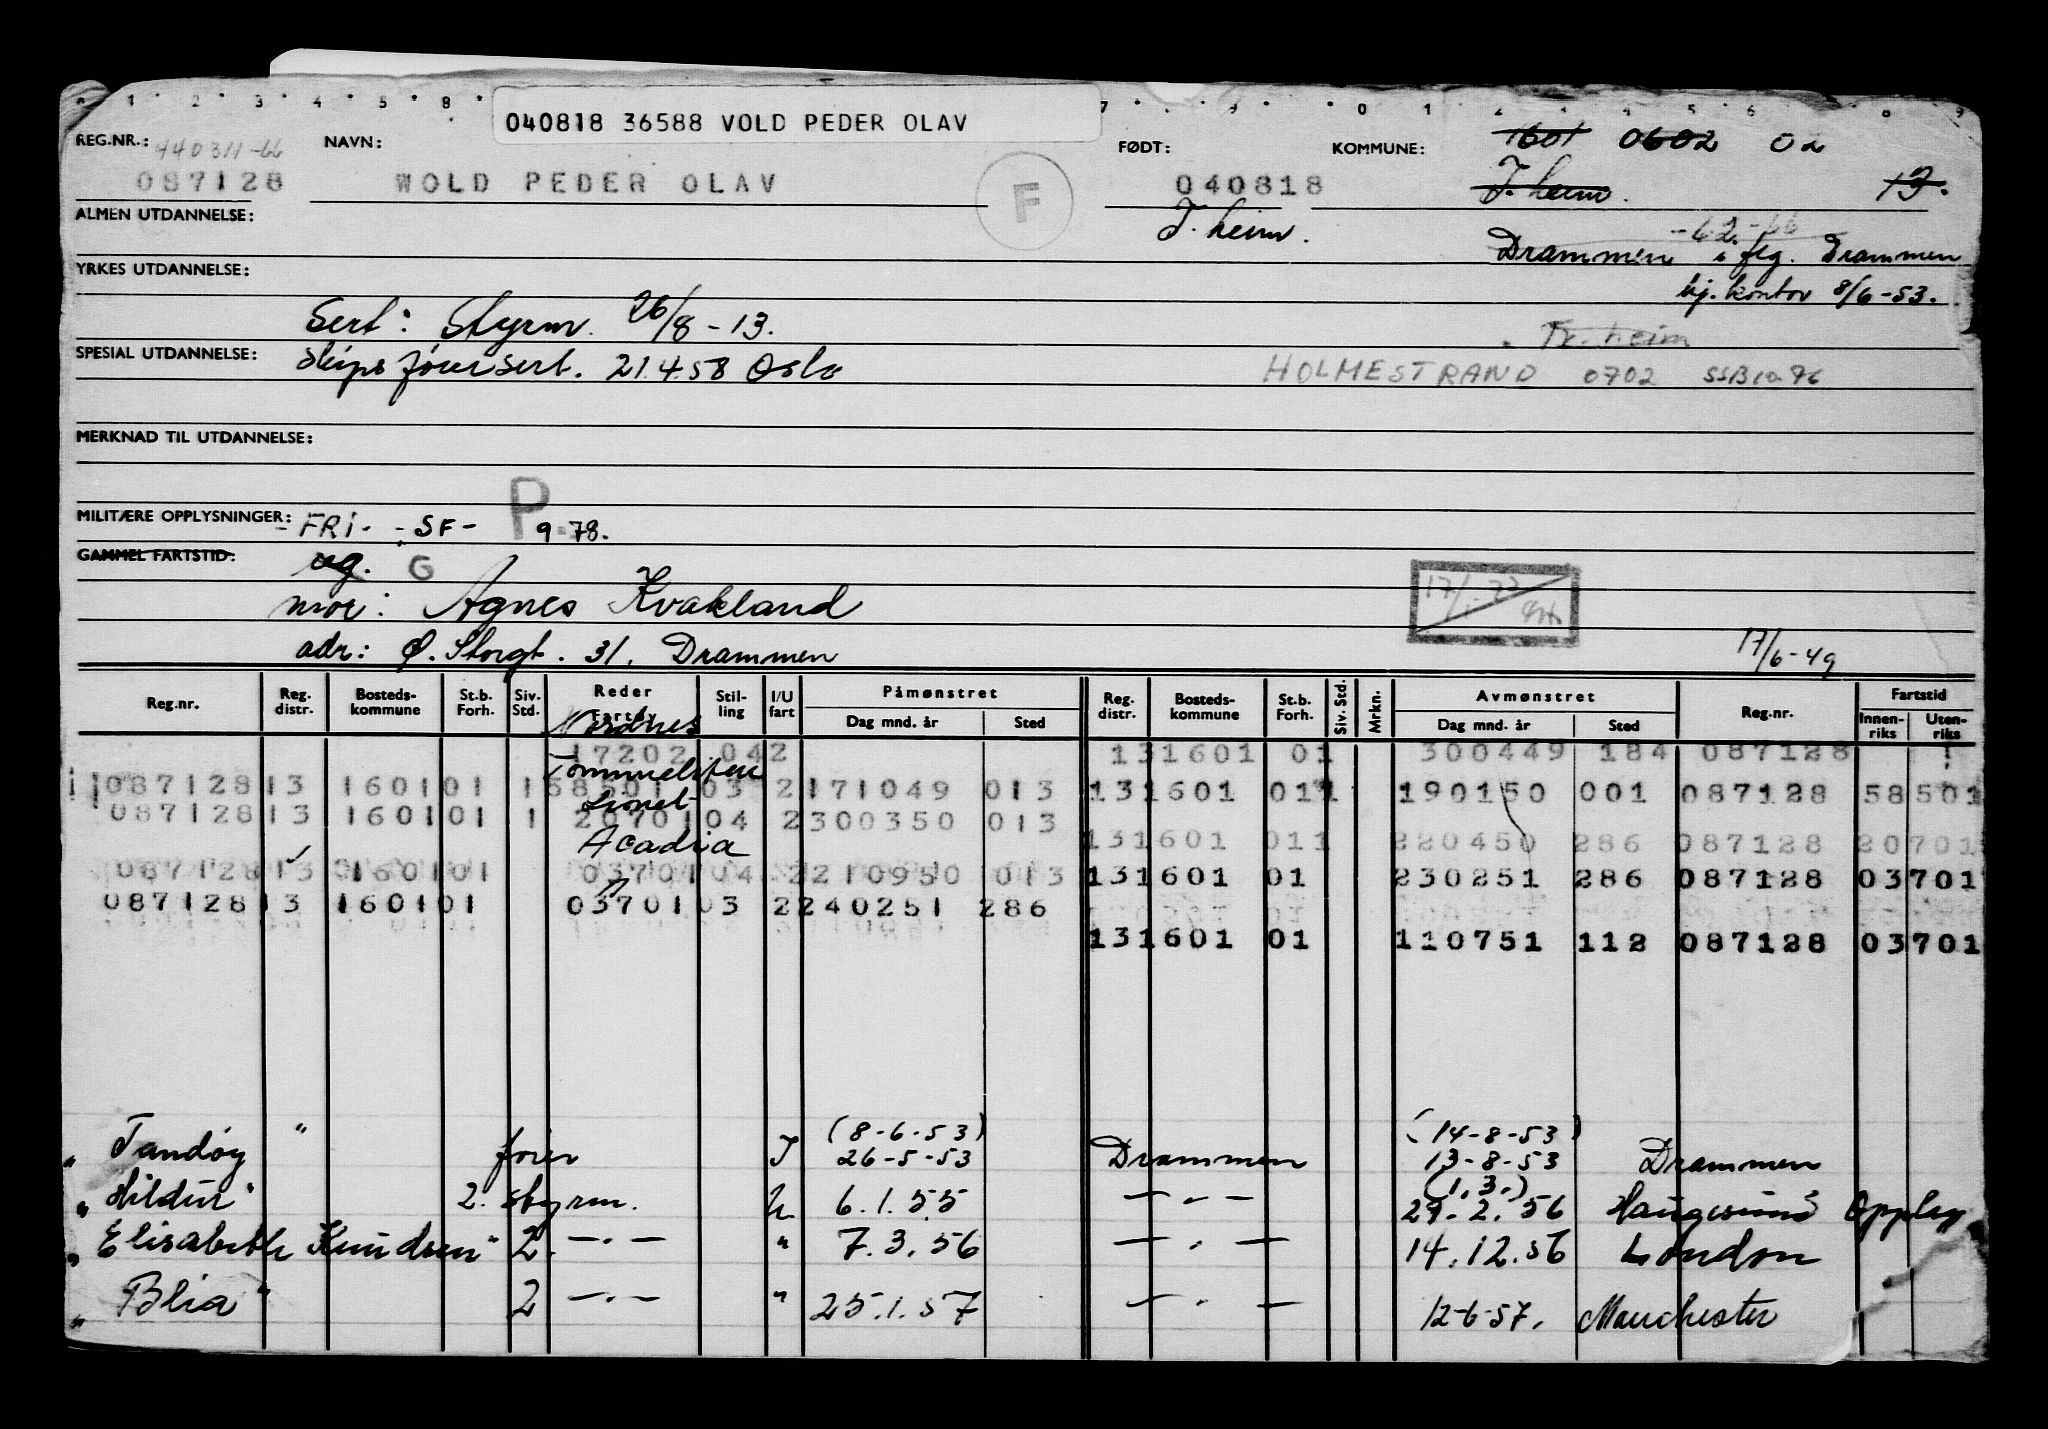 040818 36588 VOLD PEDER OLAV
REG.NR.: 440311-66 NAVN: FØDT: KOMMUNE: 1601 0602 02
087128 WOLD PEDER OLAV F 040818 T.heim. 13.
ALMEN UTDANNELSE: T.heim.
Drammen i flg. Drammen
YRKES UTDANNELSE: kontor 8/6-53.
Sert: Styrm. 26/8-13.
SPESIAL UTDANNELSE: Skipsførersert. 21.4.58 Oslo
HOLMESTRAND 0702
MERKNAD TIL UTDANNELSE:
MILITÆRE OPPLYSNINGER: -FRI- -SF- P 9-78.
GAMMEL FARTSTID: ug. G
mor: Agnes Kvakland
adr: Ø. Storgt. 31. Drammen 17/6-49
Reg.nr. Reg. distr. Bosteds- kommune St.b. Forh. Siv. Std. Reder Fartøy Stil- ling I/U fart Påmønstret Dag mnd. år Sted Reg. distr. Bosteds- kommune St.b. Forh. Siv. Std. Mrkn. Avmønstret Dag mnd. år Sted Reg.nr. Fartstid Innen- riks Uten- riks
Nordnes
17202 042 131601 01 300449 184 087128
Tommeliten
087128 13 1601 01 1 58501 03 2 171049 013 131601 011 190150 001 087128 58501
Lionel
087128 13 1601 01 1 20701 04 2 300350 013
Acadia 131601 011 220450 286 087128 20701
087128 13 1601 01 03701 04 2 210950 013 131601 01 230251 286 087128 03701
087128 13 1601 01 03701 03 2 240251 286
131601 01 110751 112 087128 03701
(8-6-53) (14-8-53)
" Tandøy " fører I 26-5-53 Drammen 13-8-53 Drammen
(1.3.)
" Hildur " 2. styrm. U 6.1.55 —.— 29.2.56 Haugesund Opplag
" Elisabeth Knudsen " 2. —.— " 7.3.56 —.— 14.12.56 London
" Blia " 2 —.— " 25.1.57 —.— 12-6-57. Manchester